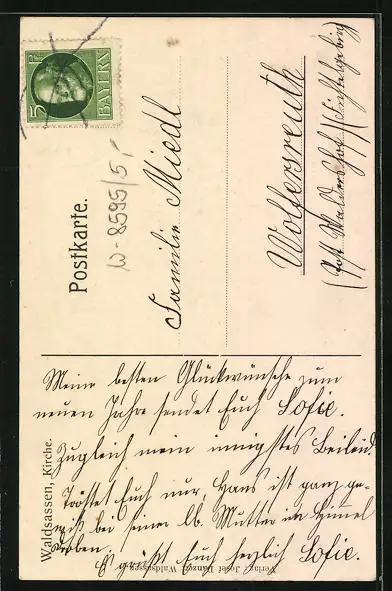 5 Pf
BAYERN
Postkarte.
W-8595/5,-
Familie Miedl
Wolfersreuth
(Post Waldershof (Fichtelgebirg)
Waldsassen, Kirche.
Meine besten Glückwünsche zum
neuen Jahre sendet Euch Sofie.
Zugleich mein innigstes Beileid.
Tröstet Euch nur, Hans ist ganz ge-
wiß bei seiner lb. Mutter im Himmel
droben.
Es grüßt Euch herzlich Sofie.
Verlag Josef Danzer, Waldsassen.